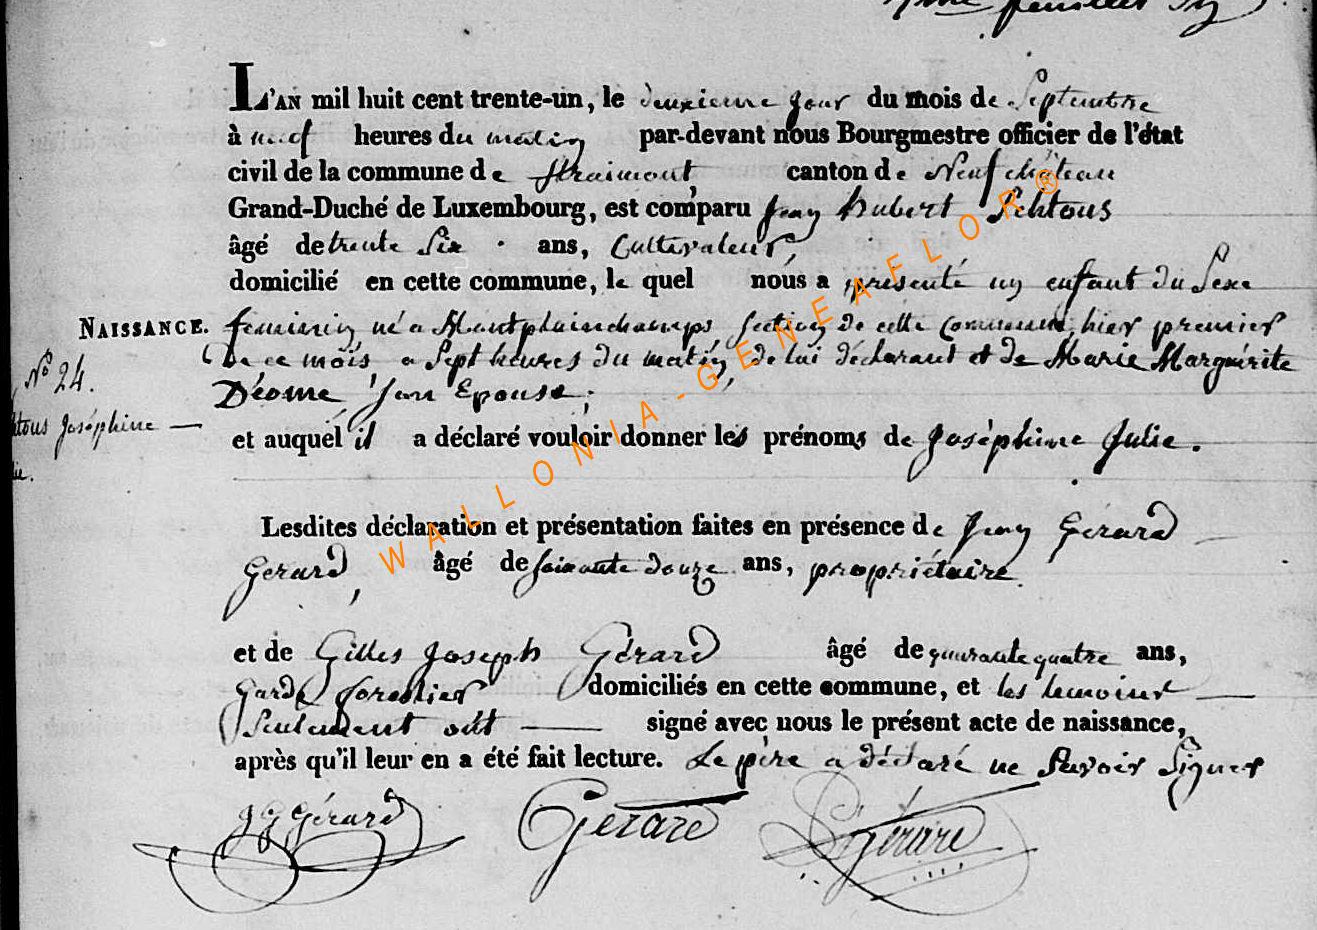 feuillet
L'AN mil huit cent trente-un, le deuxieme jour du mois de Septembre
à neuf heures du matin par-devant nous Bourgmestre officier de l'état
civil de la commune de Straimont, canton de Neufchâteau
Grand-Duché de Luxembourg, est comparu Jean Hubert Schtous
âgé de trente Six ans, Cultivateur,
domicilié en cette commune, le quel nous a présenté un enfant du Sexe
NAISSANCE. feminin né a Montplainchamps section de cette Commune, hier premier
De ce mois, a Sept heures du matin, de lui déclarant et de Marie Marguérite
No 24.
Déome Son Epouse;
htous Joséphine —
et auquel il a déclaré vouloir donner les prénoms de Joséphine Julie.
lie.
Lesdites déclaration et présentation faites en présence de Jean Gérard
Gerard, âgé de soixante douze ans, propriétaire
et de Gilles Joseph Gérard âgé de quarante quatre ans,
Garde forestier domiciliés en cette commune, et les temoins
Seulement ont signé avec nous le présent acte de naissance,
après qu'il leur en a été fait lecture. Le père a déclaré ne Savoir Signer
JG Gérard Gerard Gérard
WALLONIA-GENEAFLOR®